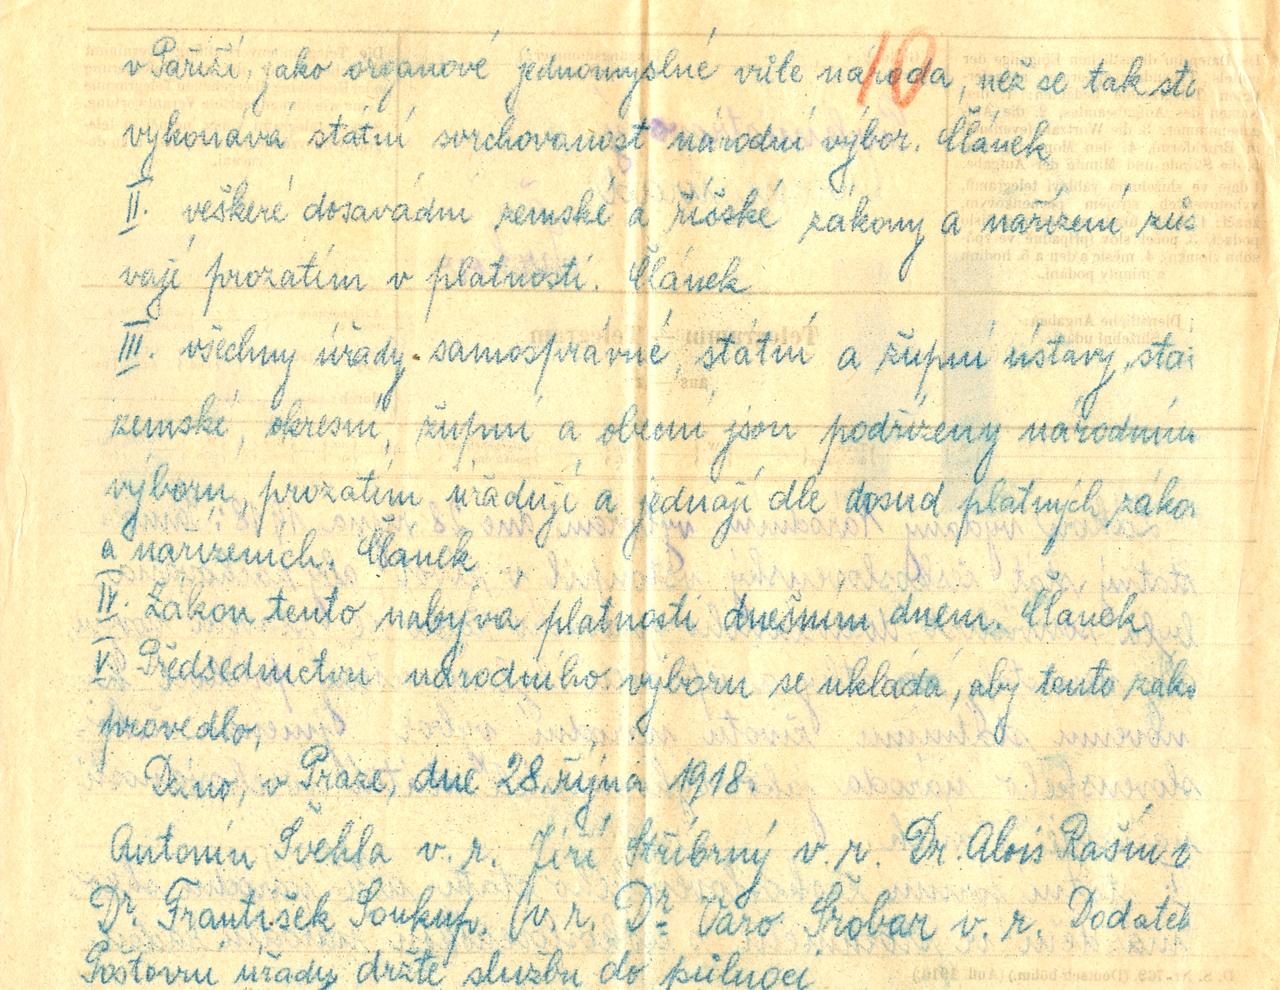 10
v Paříži, jako orgánové jednomyslné vůle národa, než se tak sta
vykonává státní svrchovanost národní výbor. Článek
II. veškeré dosavádní zemské a říšské zákony a nařízení zůs
vají prozatím v platnosti. Článek
III. všechny úřady samosprávné, státní a župní ústavy, stát
zemské, okresní, župní a obecní json podřízeny národnímu
výboru, prozatím úřadují a jednají dle dosud platných záko
a nařízeních. Článek
IV. Zákon tento nabývá platnosti dnešním dnem. Článek
V. Předsednictvu národního výboru se ukládá, aby tento záko
provedlo.
Dáno, v Praze, dne 28. října 1918.
Antonín Švehla v. r. Jiří Stříbrný v. r. Dr. Alois Rašín v
Dr. František Soukup. v. r. Dr. Vávro Šrobár v. r. Dodatek
Poštovní úřady držte službu do půlnoci